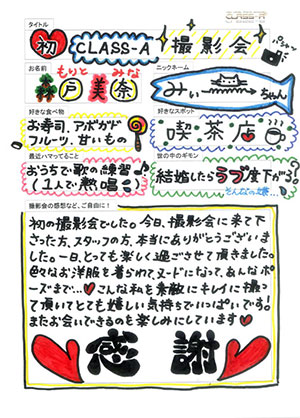 CLASS-A
タイトル
初 CLASS-A 撮影会
パシャッ
お名前
もりと みな
森戸 美奈
ニックネーム
みぃちゃん
好きな食べ物
お寿司、アボカド
フルーツ、甘いもの
好きなスポット
喫茶店
最近ハマってること
おうちで歌の練習♪
(1人で熱唱)
世の中のギモン
結婚したらラブ度下がる!
そんなの嫌…
撮影会の感想など、ご自由に!
初の撮影会でした。今日、撮影会に来て下
さった方、スタッフの方、本当にありがとうございま
した。一日、とっても楽しく過ごさせて頂きました。
色々なお洋服を着られて、ヌードになって、あんなポ
ーズまで…♥こんな私を素敵にキレイに撮っ
て頂いてとても嬉しい気持ちでいっぱいです!
またお会いできるのを楽しみにしています♥
感謝